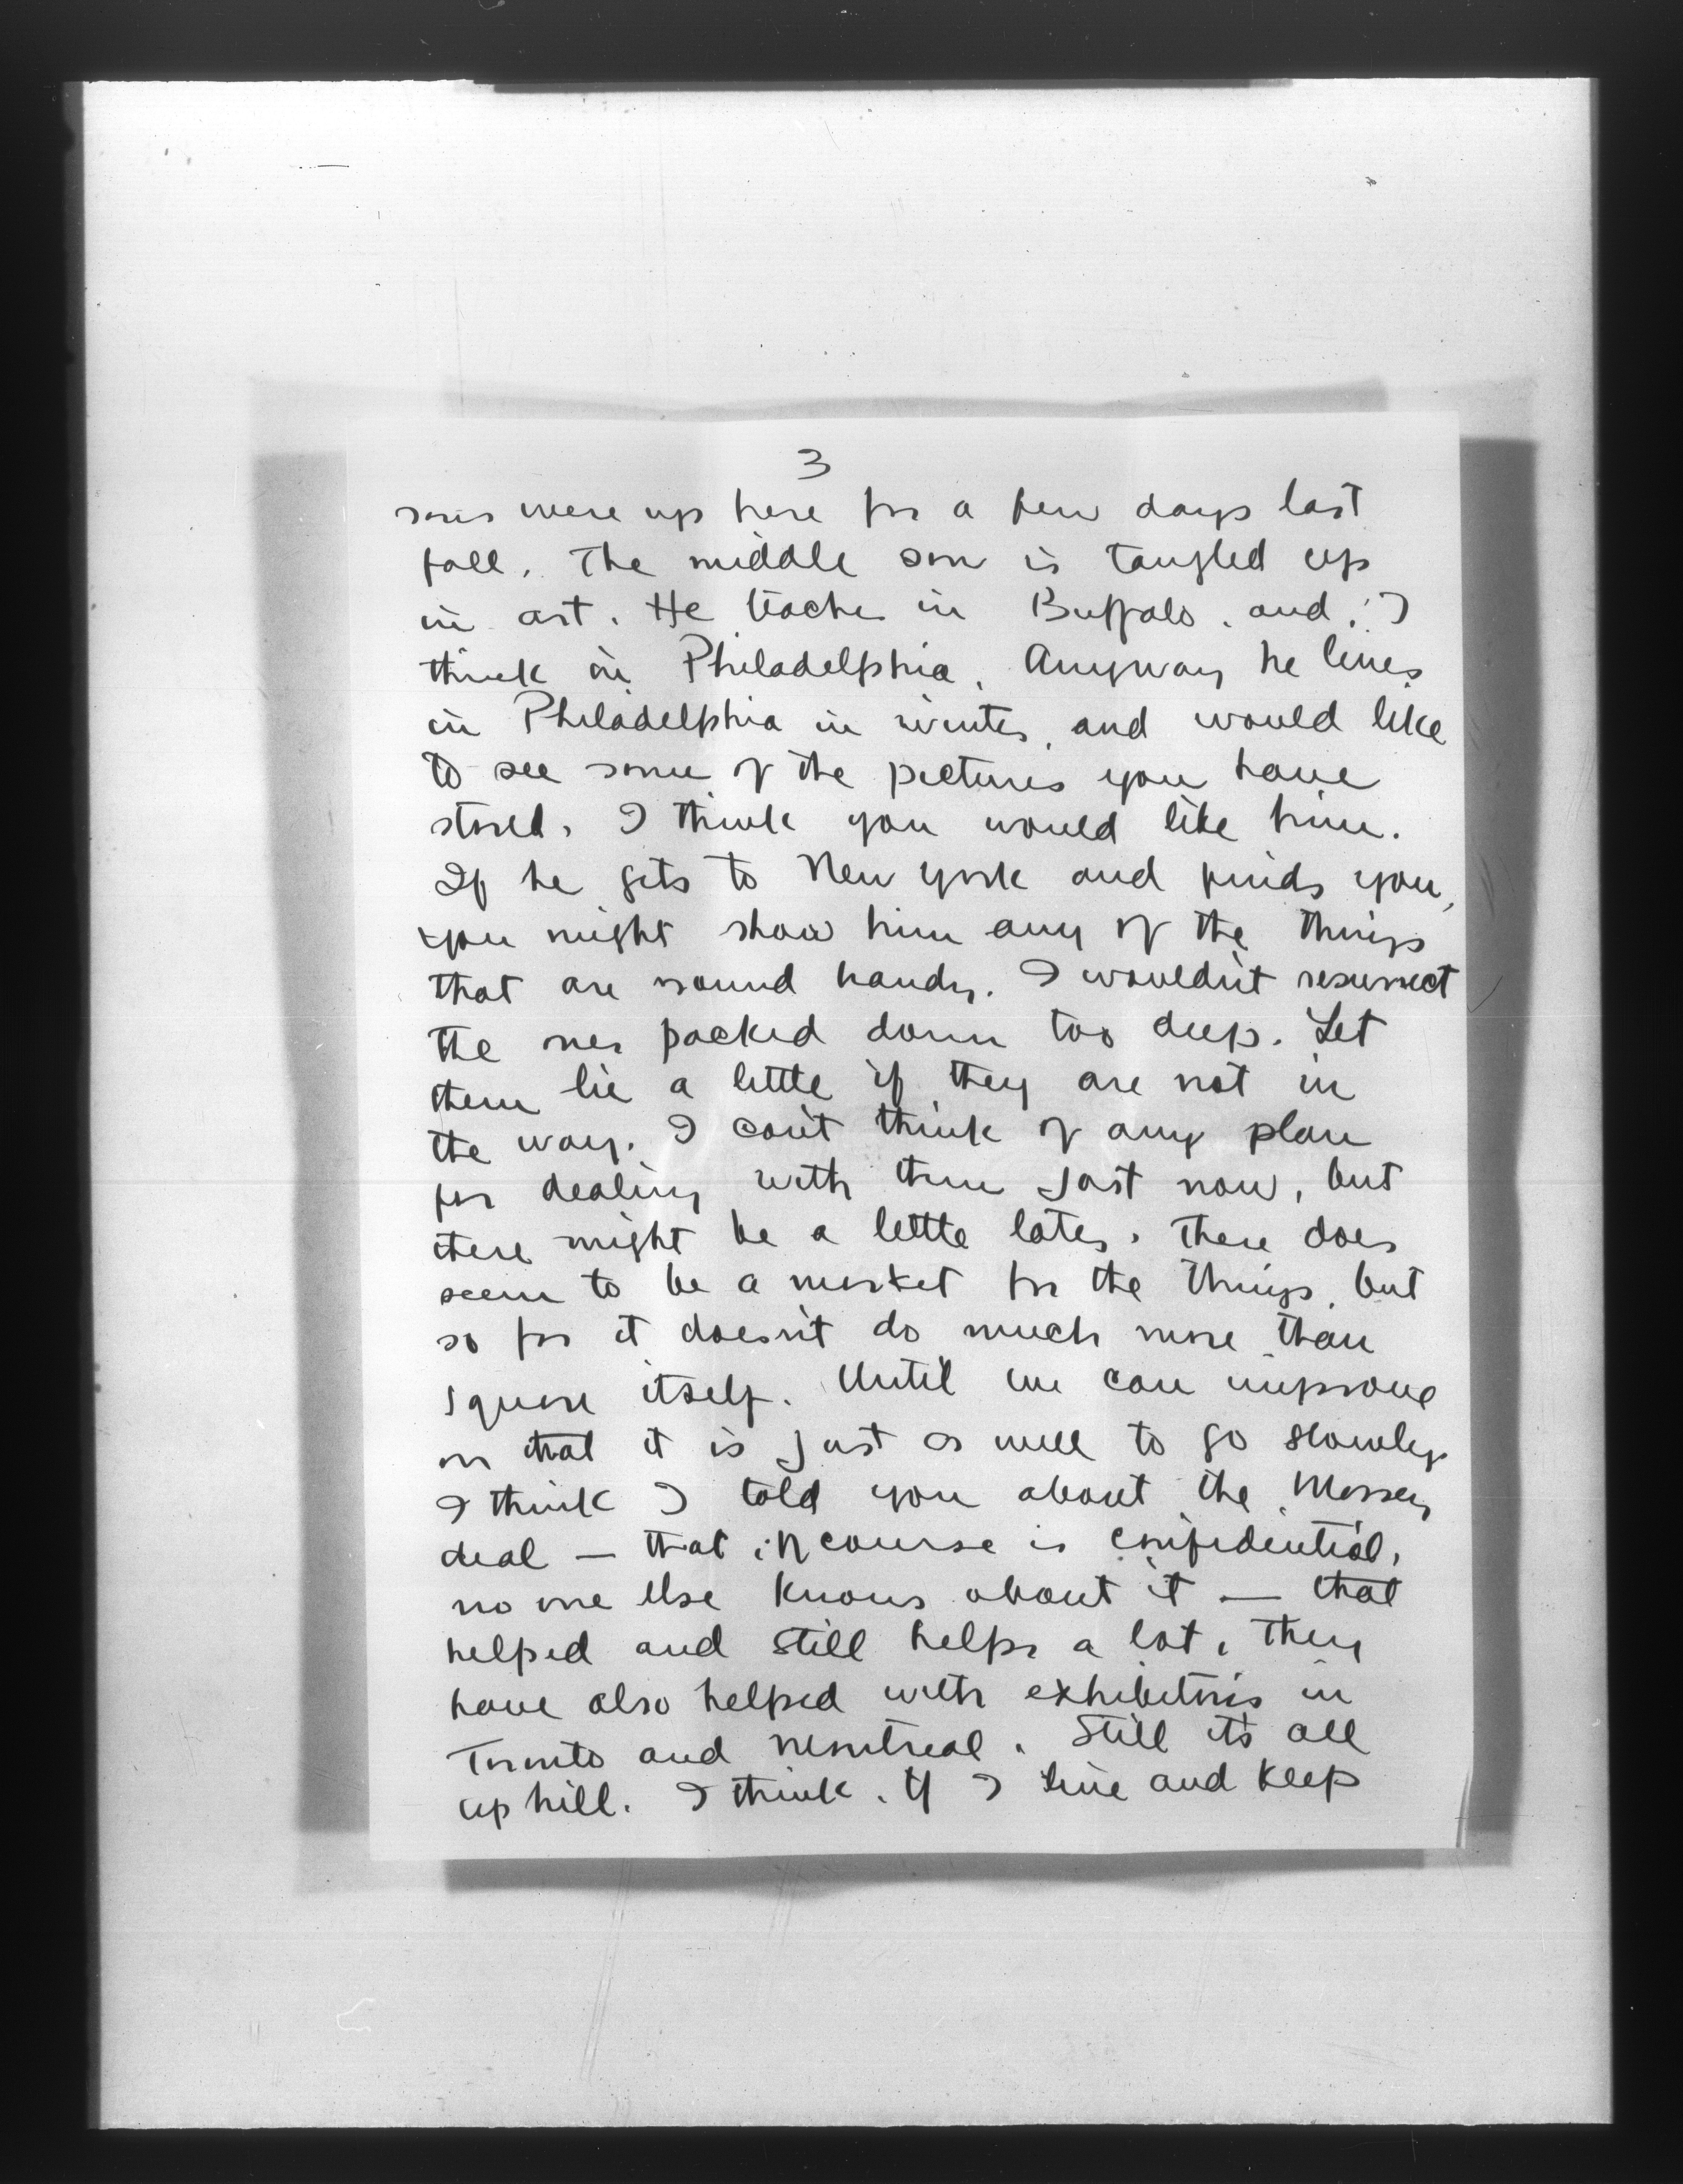 3
sons were up here for a few days last
fall. The middle son is tangled up
in art. He teaches in Buffalo, and, I
think in Philadelphia. Anyway he lives
in Philadelphia in winter, and would like
to see some of the pictures you have
stored. I think you would like him.
If he gets to New York and finds you,
you might show him any of the things
that are round handy. I wouldn't resurrect
the ones packed down too deep. Let
them lie a little if they are not in
the way. I can't think of any plan
for dealing with them just now, but
there might be a little later. There does
seem to be a market for the things, but
so far it doesn't do much more than
square itself. Until we can improve
on that it is just as well to go slowly
I think I told you about the Massey
deal — that of course is confidential,
no one else knows about it — that
helped and still helps a lot. They
have also helped with exhibitions in
Toronto and Montreal. Still it's all
up hill. I think, if I live and keep